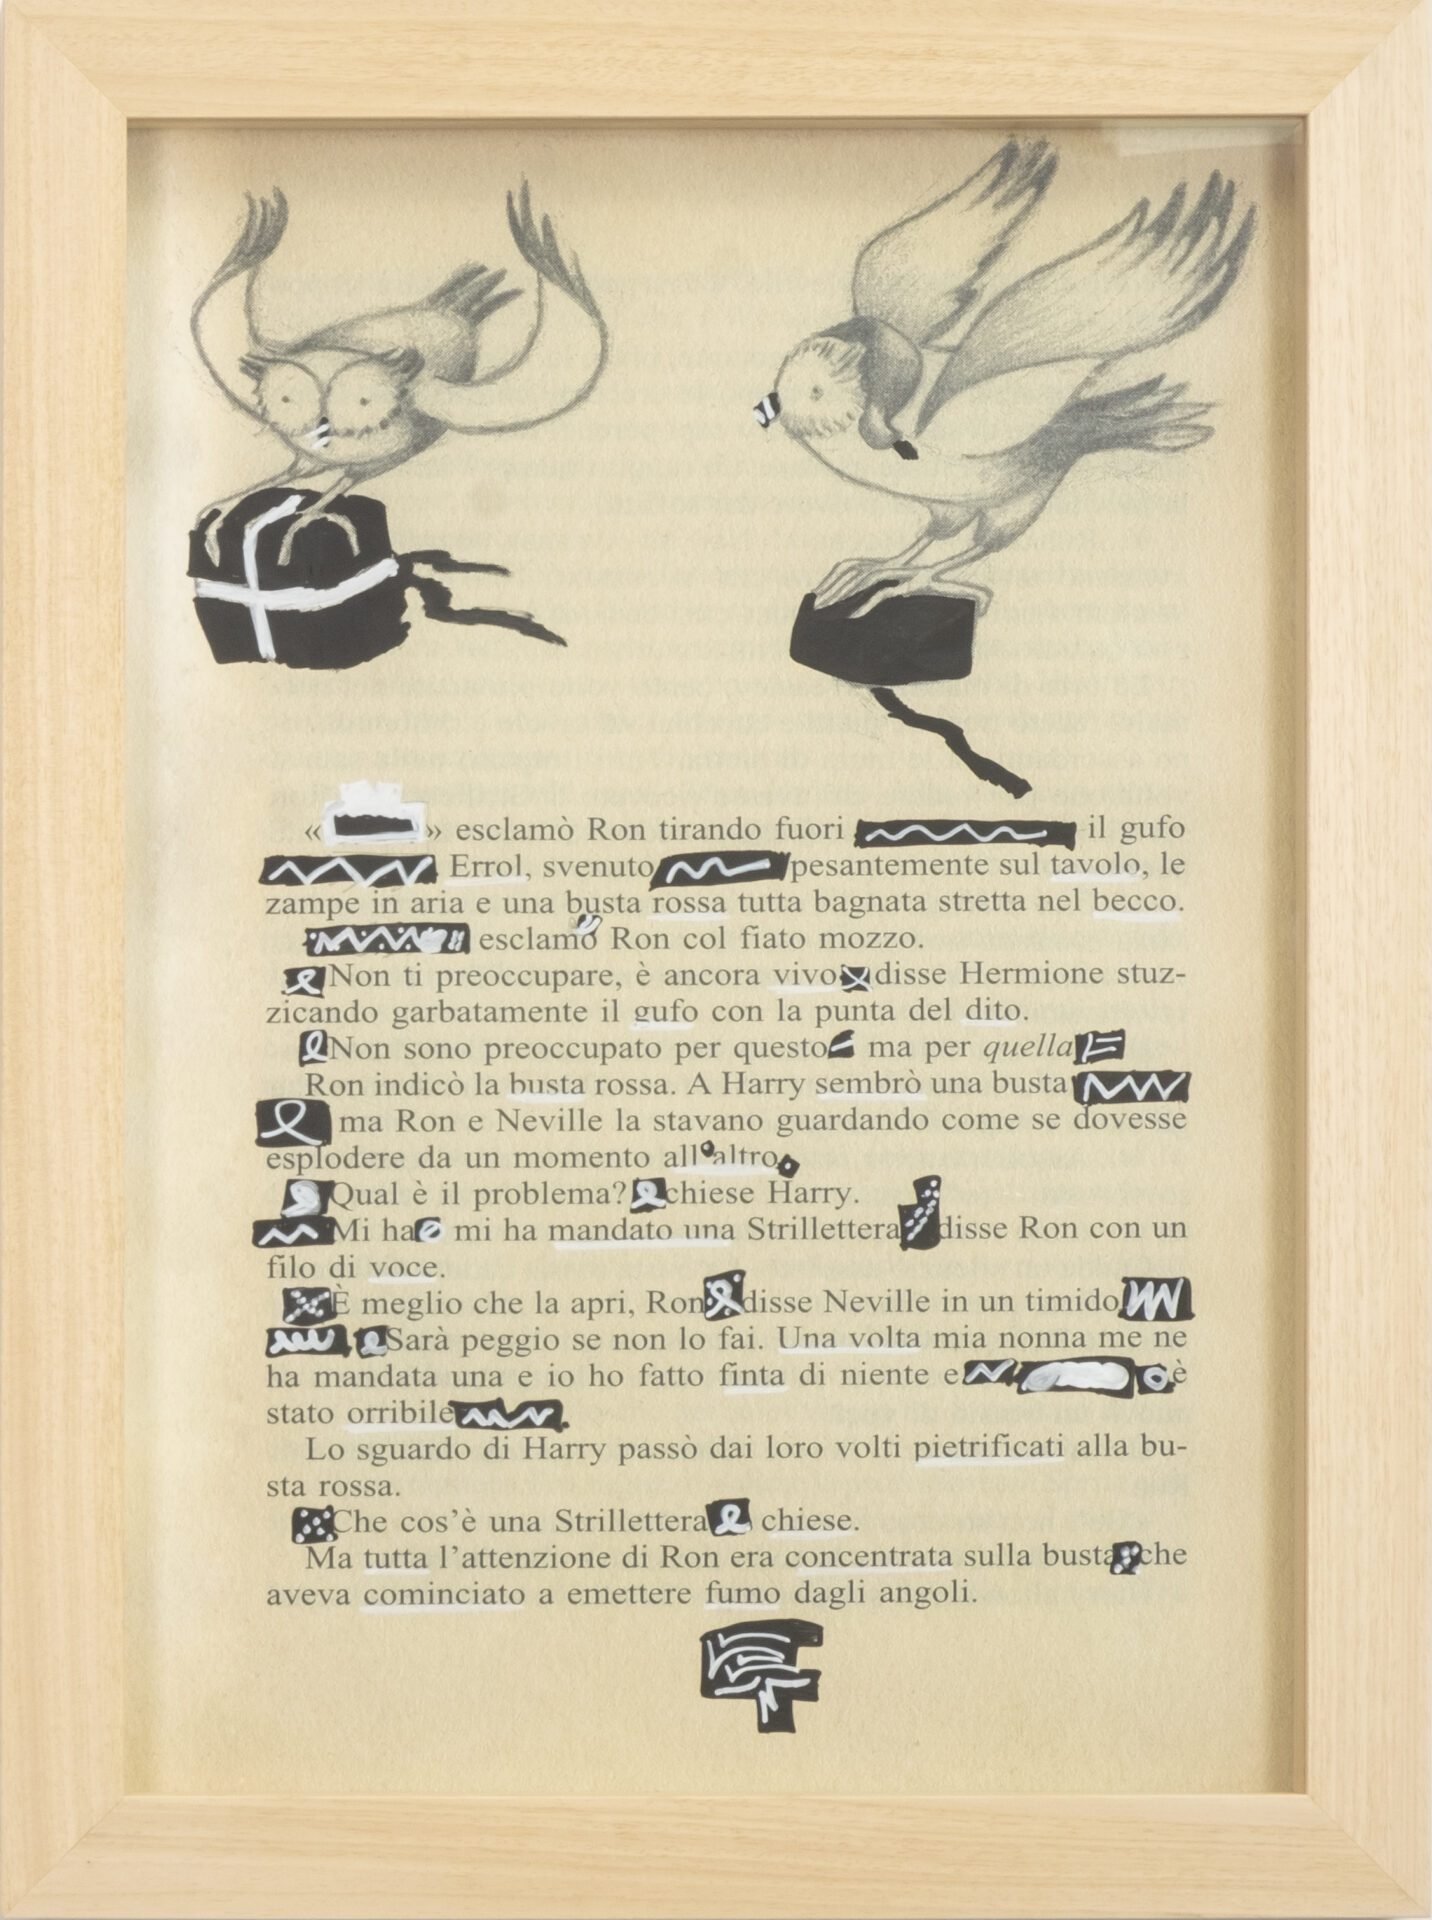 « » esclamò Ron tirando fuori il gufo
Errol, svenuto pesantemente sul tavolo, le
zampe in aria e una busta rossa tutta bagnata stretta nel becco.
esclamò Ron col fiato mozzo.
Non ti preoccupare, è ancora vivo disse Hermione stuz-
zicando garbatamente il gufo con la punta del dito.
Non sono preoccupato per questo ma per quella
Ron indicò la busta rossa. A Harry sembrò una busta
ma Ron e Neville la stavano guardando come se dovesse
esplodere da un momento all altro
Qual è il problema? chiese Harry.
Mi ha mi ha mandato una Strillettera disse Ron con un
filo di voce.
È meglio che la apri, Ron disse Neville in un timido
Sarà peggio se non lo fai. Una volta mia nonna me ne
ha mandata una e io ho fatto finta di niente e è
stato orribile
Lo sguardo di Harry passò dai loro volti pietrificati alla bu-
sta rossa.
Che cos’è una Strillettera chiese.
Ma tutta l’attenzione di Ron era concentrata sulla busta che
aveva cominciato a emettere fumo dagli angoli.